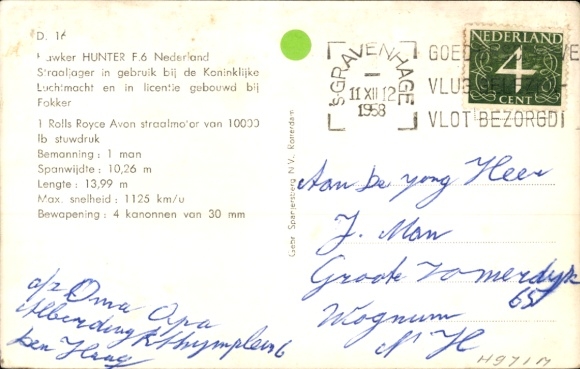 D. 16
Hawker HUNTER F.6 Nederland
Straaljager in gebruik bij de Koninklijke
Luchtmacht en in licentie gebouwd bij
Fokker
1 Rolls Royce Avon straalmotor van 10000
lb stuwdruk
Bemanning : 1 man
Spanwijdte : 10,26 m
Lengte : 13,99 m
Max. snelheid : 1125 km/u
Bewapening : 4 kanonnen van 30 mm
a/z Oma Opa
Alberdingk Thymplein 6
Den Haag
Gebr. Spanjersberg N.V., Rotterdam
's-GRAVENHAGE
11 XII 12
1958
VLOT BEZORGD!
NEDERLAND
4
CENT
Aan De yong Heer
J. Man
Groote Zomerdyk
65
Wognum
N. H
H971M